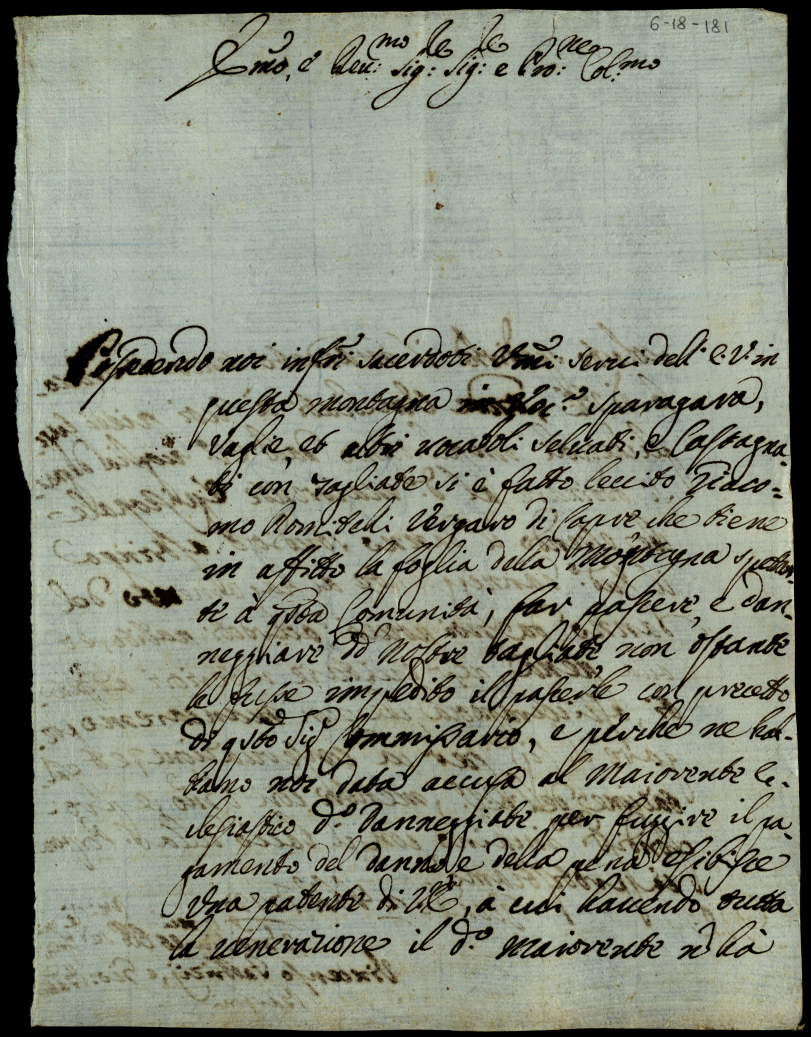 6-18-181
Ill.mo, e Reu:mo Sig:re Sig:re e Pro:ne Col:mo
Possedendo noi infri sacerdoti Vmi serui dell' E.V. in
questa montagna in Voc.o sparagara,
Vaglie, et altri vocaboli seluati, e Castagna-
ti con tagliate si è fatto leccito Giaco-
mo Romitelli Vergaro di Capre che tiene
in affitto la foglia della Montagna spettan-
te à qsta Comunità, far pascere, e dan-
neggiare dd nostre tagliate, non ostante
le fusse impedito il pascerle con precetto
di qsto Sig.r Commissario, e perche ne hab-
biamo noi data accusa al Maiorente Ec-
clesiastico d.o Danneggiate per fuggire il pa-
gamento del danno, e della pena esibisce
Vna patente di VE, à cui hauendo tutta
la venerazione il d.o Maiorente n hà